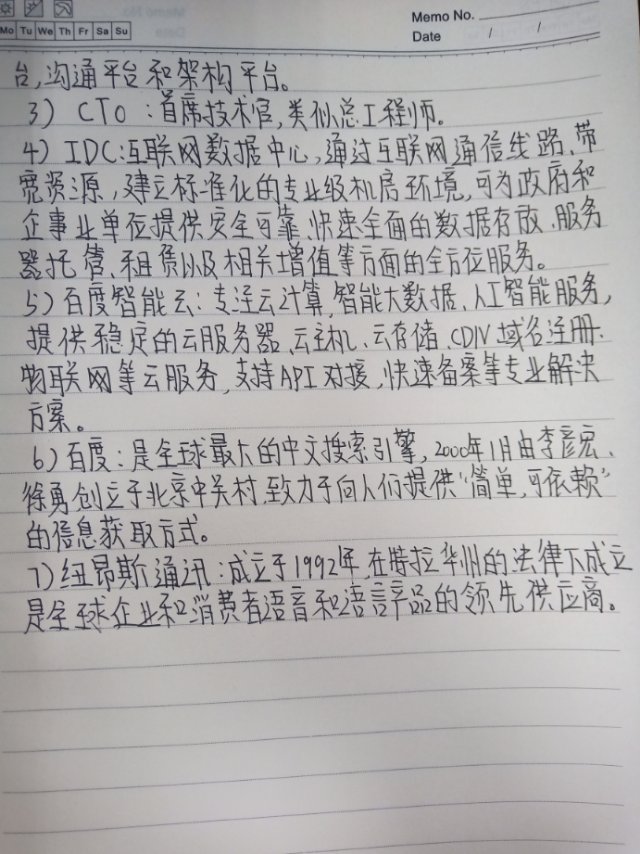 Mo Tu We Th Fr Sa Su
Memo No.
Date / /
台,沟通平台和架构平台。
3) CTO:首席技术官,类似总工程师。
4) IDC:互联网数据中心,通过互联网通信线路、带
宽资源,建立标准化的专业级机房环境,可为政府和
企事业单位提供安全可靠、快速全面的数据存放、服务
器托管、租赁以及相关增值等方面的全方位服务。
5) 百度智能云:专注云计算,智能大数据、人工智能服务,
提供稳定的云服务器、云主机、云存储、CDN、域名注册、
物联网等云服务,支持API对接,快速备案等专业解决
方案。
6) 百度:是全球最大的中文搜索引擎,2000年1月由李彦宏、
徐勇创立于北京中关村,致力于向人们提供“简单,可依赖”
的信息获取方式。
7) 纽昂斯通讯:成立于1992年,在特拉华州的法律下成立
是全球企业和消费者语音和语言产品的领先供应商。